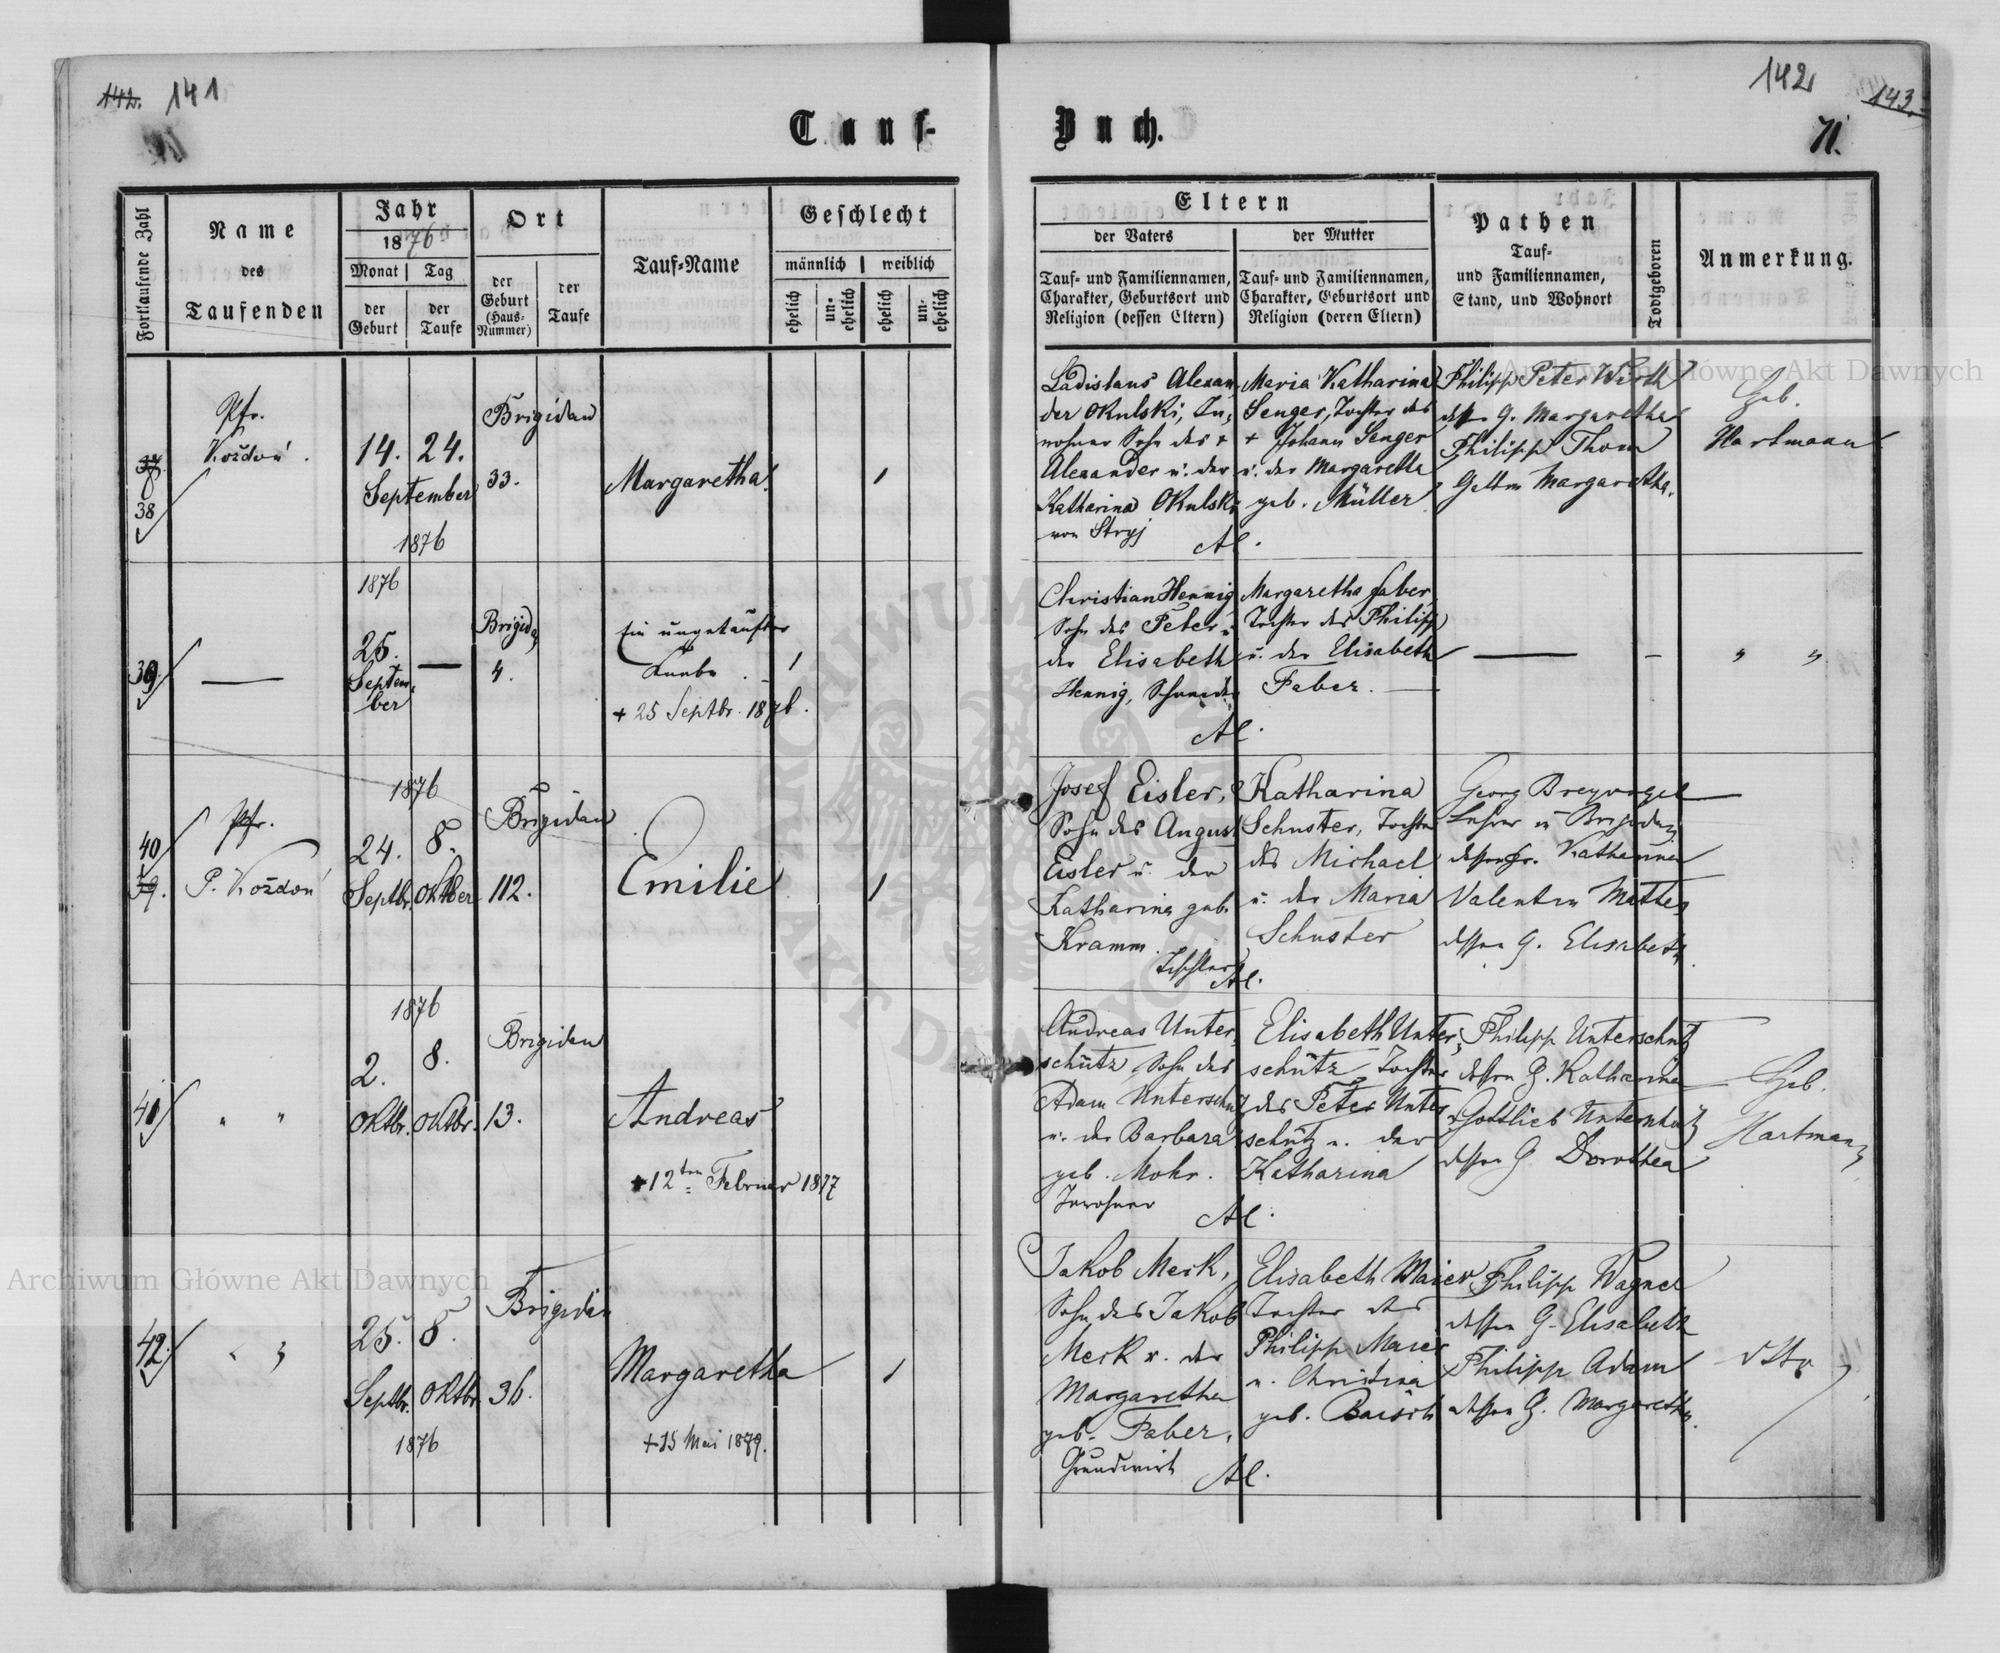 142. 141
142 143.
71.
Tauf-
Buch.
Fortlaufende Zahl
Name
des
Taufenden
Jahr
1876
Monat
Tag
der
Geburt
der
Taufe
Ort
der
Geburt
(Haus-
Nummer)
der
Taufe
Tauf-Name
Geschlecht
männlich
weiblich
ehelich
un-
ehelich
ehelich
un-
ehelich
Eltern
der Vaters
der Mutter
Tauf- und Familiennamen,
Charakter, Geburtsort und
Religion (dessen Eltern)
Tauf- und Familiennamen,
Charakter, Geburtsort und
Religion (deren Eltern)
Pathen
Tauf-
und Familiennamen,
Stand, und Wohnort
Todtgeboren
Anmerkung.
37.
38
Pfr.
Koždoń.
14. 24.
September
1876
Brigidau
33.
Margaretha
1
Ladislaus Alexan
der Okulski, In-
wohner Sohn des +
Alexander u. der
Katharina Okulski
von Stryj
Al.
Maria Katharina
Senger, Tochter des
+ Johann Senger
u. der Margaretha
geb. Müller
Philipp Peter Werth
dessen G. Margaretha
Philipp Thom
Gattin Margaretha.
Geb.
Hartmann
39
—
1876
25.
Septem-
ber
—
Brigid.
4.
Ein ungetaufter
Knabe.
+ 25 Septbr. 1876.
1
Christian Hennig
Sohn des Peter u.
der Elisabeth
Hennig, Schneider
Al.
Margaretha Faber
Tochter des Philipp
u. der Elisabeth
Faber. —
—
—
" "
40
39.
Pfr.
P. Koždoń
1876
24. 8.
Septbr. Oktber
Brigidau
112.
Emilie
1
Josef Eisler,
Sohn des August
Eisler u. der
Katharina geb.
Kramm.
Tischler
Al.
Katharina
Schuster, Tochter
des Michael
u. der Maria
Schuster
Georg Breyvogel
Lehrer in Brigidau
dessen Fr. Katharina
Valentin Mattes
dessen G. Elisabeth.
41
" "
1876
2. 8.
Oktbr. Oktbr.
Brigidau
13.
Andreas
+ 12ten Februar 1877
Andreas Unter-
schütz, Sohn des
Adam Unterschütz
u. der Barbara
geb. Mohr.
Inwohner
Al.
Elisabeth Unter-
schütz Tochter
des Peter Unter
schütz u. der
Katharina
Philipp Unterschütz
dessen G. Katharina
Gottlieb Unterschütz
dessen G Dorothea
Geb.
Hartmann
42.
" "
25. 8.
Septbr. Oktbr.
1876
Brigidau
36.
Margaretha
+ 15 Mai 1879.
1
Jakob Merk,
Sohn des Jakob
Merk u. der
Margaretha
geb. Faber,
Grundwirt
Al.
Elisabeth Maier
Tochter des
Philipp Maier
u. Christina
geb. Baisch
Philipp Wagner
dessen G. Elisabeth
Philipp Adam
dessen G. Margaretha.
dtto
Archiwum Główne Akt Dawnych
Archiwum Główne Akt Dawnych
ARCHIWUM GŁÓWNE AKT DAWNYCH